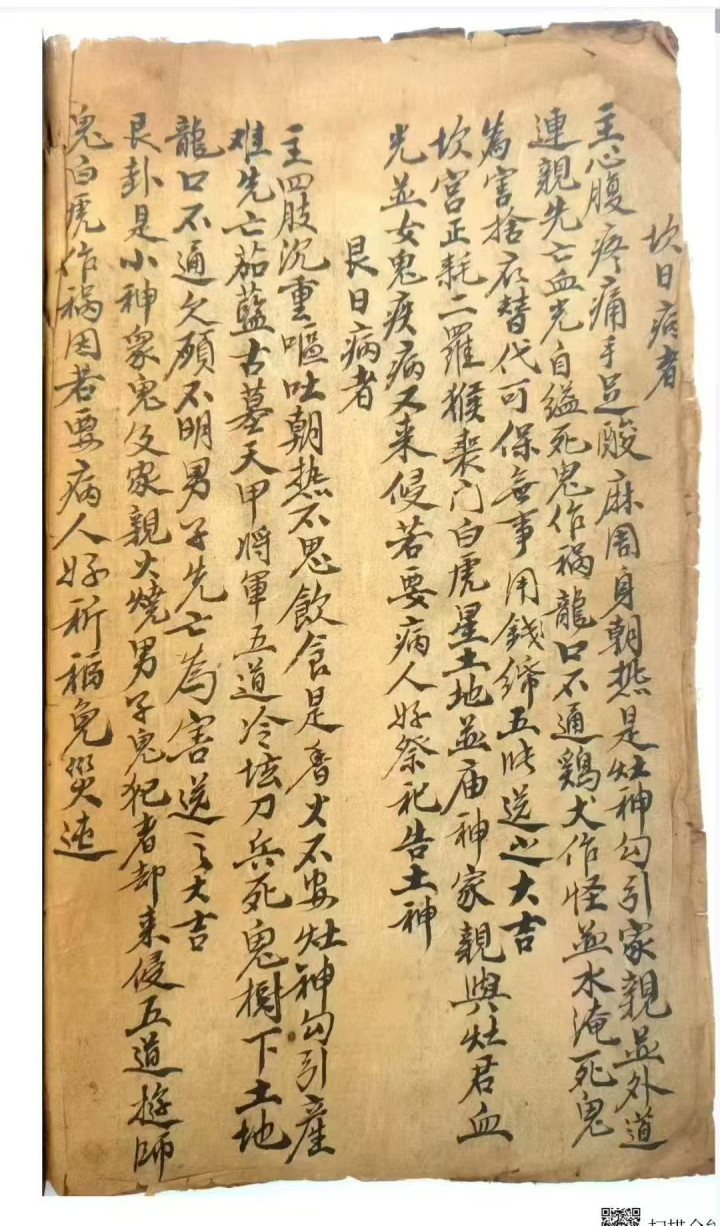 坎日病者
主心腹疼痛手足酸麻周身朝热是灶神勾引家親並外道
連親先亡血光自縊死鬼作禍龍口不通鷄犬作怪並水淹死鬼
為害捨衣替代可保無事用錢綿五张送之大吉
坎宮正耗二羅猴喪门白虎星土地並庙神家親與灶君血
光並女鬼疾病又来侵若要病人好祭祀告土神
艮日病者
主四肢沉重嘔吐朝热不思飲食是香火不安灶神勾引産
难先亡茄藍古墓天甲将軍五道冷坛刀兵死鬼樹下土地
龍口不通欠願不明男子先亡為害送之大吉
艮卦是小神衆鬼及家親火燒男子鬼犯者却来侵五道遊師
鬼白虎作祸因若要病人好祈福免災迍
扫描全